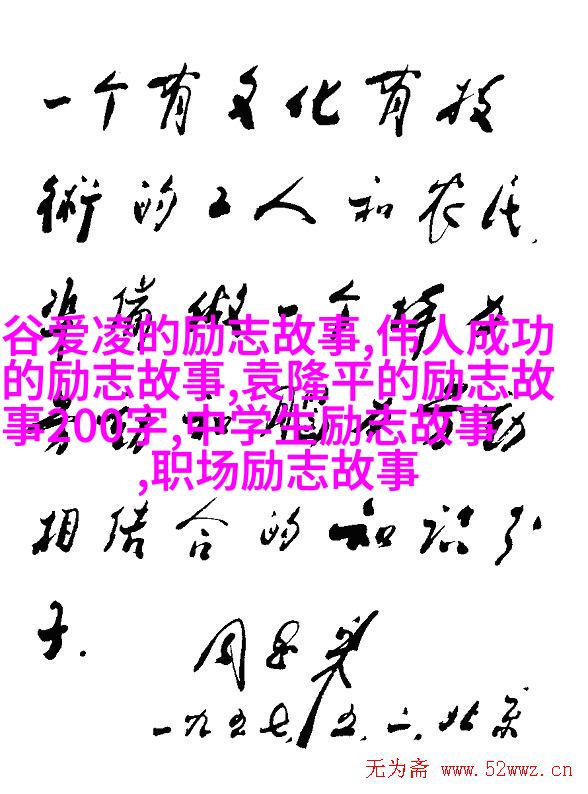 一个有文化有技
術的工人和农民,
谷爱凌的励志故事,伟人成功
的励志故事,袁隆平的励志故
事200字,中学生励志故事
,职场励志故事
相结合的知识分
子.
周恩来
一九五七,五,二,北京
无为斋 www.52wwz.cn